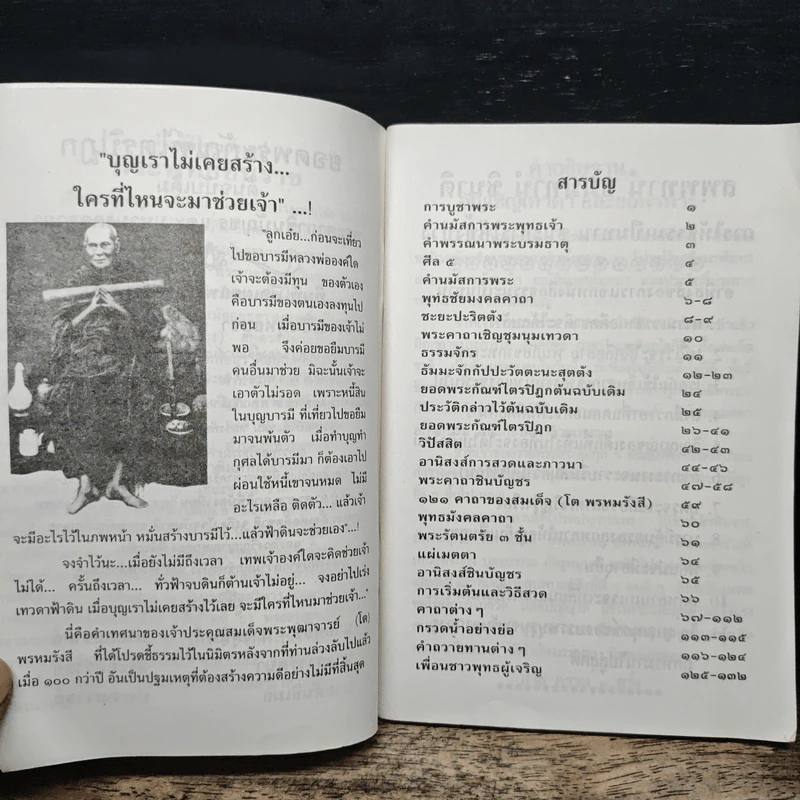 "บุญเราไม่เคยสร้าง...
ใครที่ไหนจะมาช่วยเจ้า" ...!
"ลูกเอ๋ย...ก่อนจะเที่ยว
ไปขอบารมีหลวงพ่อองค์ใด
เจ้าจะต้องมีทุน ของตัวเอง
คือบารมีของตนเองลงทุนไป
ก่อน เมื่อบารมีของเจ้าไม่
พอ จึงค่อยขอยืมบารมี
คนอื่นมาช่วย มิฉะนั้นเจ้าจะ
เอาตัวไม่รอด เพราะหนี้สิน
ในบุญบารมี ที่เที่ยวไปขอยืม
มาจนพ้นตัว เมื่อทำบุญทำ
กุศลได้บารมีมา ก็ต้องเอาไป
ผ่อนใช้หนี้เขาจนหมด ไม่มี
อะไรเหลือ ติดตัว... แล้วเจ้า
จะมีอะไรไว้ในภพหน้า หมั่นสร้างบารมีไว้...แล้วฟ้าดินจะช่วยเอง"...!
จงจำไว้นะ...เมื่อยังไม่มีถึงเวลา เทพเจ้าองค์ใดจะคิดช่วยเจ้า
ไม่ได้... ครั้นถึงเวลา... ทั่วฟ้าจบดินก็ต้านเจ้าไม่อยู่... จงอย่าไปเร่ง
เทวดาฟ้าดิน เมื่อบุญเราไม่เคยสร้างไว้เลย จะมีใครที่ไหนมาช่วยเจ้า..."
นี่คือคำเทศนาของเจ้าประคุณสมเด็จพระพุฒาจารย์ (โต)
พรหมรังสี ที่ได้โปรดชี้ธรรมไว้ในนิมิตรหลังจากที่ท่านล่วงลับไปแล้ว
เมื่อ ๑๐๐ กว่าปี อันเป็นปฐมเหตุที่ต้องสร้างความดีอย่างไม่มีที่สิ้นสุด
สารบัญ
การบูชาพระ ๑
คำนมัสการพระพุทธเจ้า ๒
คำพรรณนาพระบรมธาตุ ๓
ศีล ๕ ๔
คำนมัสการพระ ๕
พุทธชัยมงคลคาถา ๖-๘
ชะยะปะริตตัง ๘-๙
พระคาถาเชิญชุมนุมเทวดา ๑๐
ธรรมจักร ๑๑
ธัมมะจักกัปปะวัตตะนะสุตตัง ๑๒-๒๓
ยอดพระกัณฑ์ไตรปิฎกต้นฉบับเดิม ๒๔
ประวัติกล่าวไว้ต้นฉบับเดิม ๒๕
ยอดพระกัณฑ์ไตรปิฎก ๒๖-๔๑
วิปัสสิต ๔๒-๔๓
อานิสงส์การสวดและภาวนา ๔๔-๔๖
พระคาถาชินบัญชร ๔๗-๕๘
๑๒๑ คาถาของสมเด็จ (โต พรหมรังสี) ๕๙
พุทธมังคลคาถา ๖๐
พระรัตนตรัย ๓ ชั้น ๖๑
แผ่เมตตา ๖๔
อานิสงส์ชินบัญชร ๖๕
การเริ่มต้นและวิธีสวด ๖๖
คาถาต่างๆ ๖๗-๑๑๒
กรวดน้ำอย่างย่อ ๑๑๓-๑๑๕
คำถวายทานต่างๆ ๑๑๖-๑๒๔
เพื่อนชาวพุทธผู้เจริญ ๑๒๕-๑๓๒